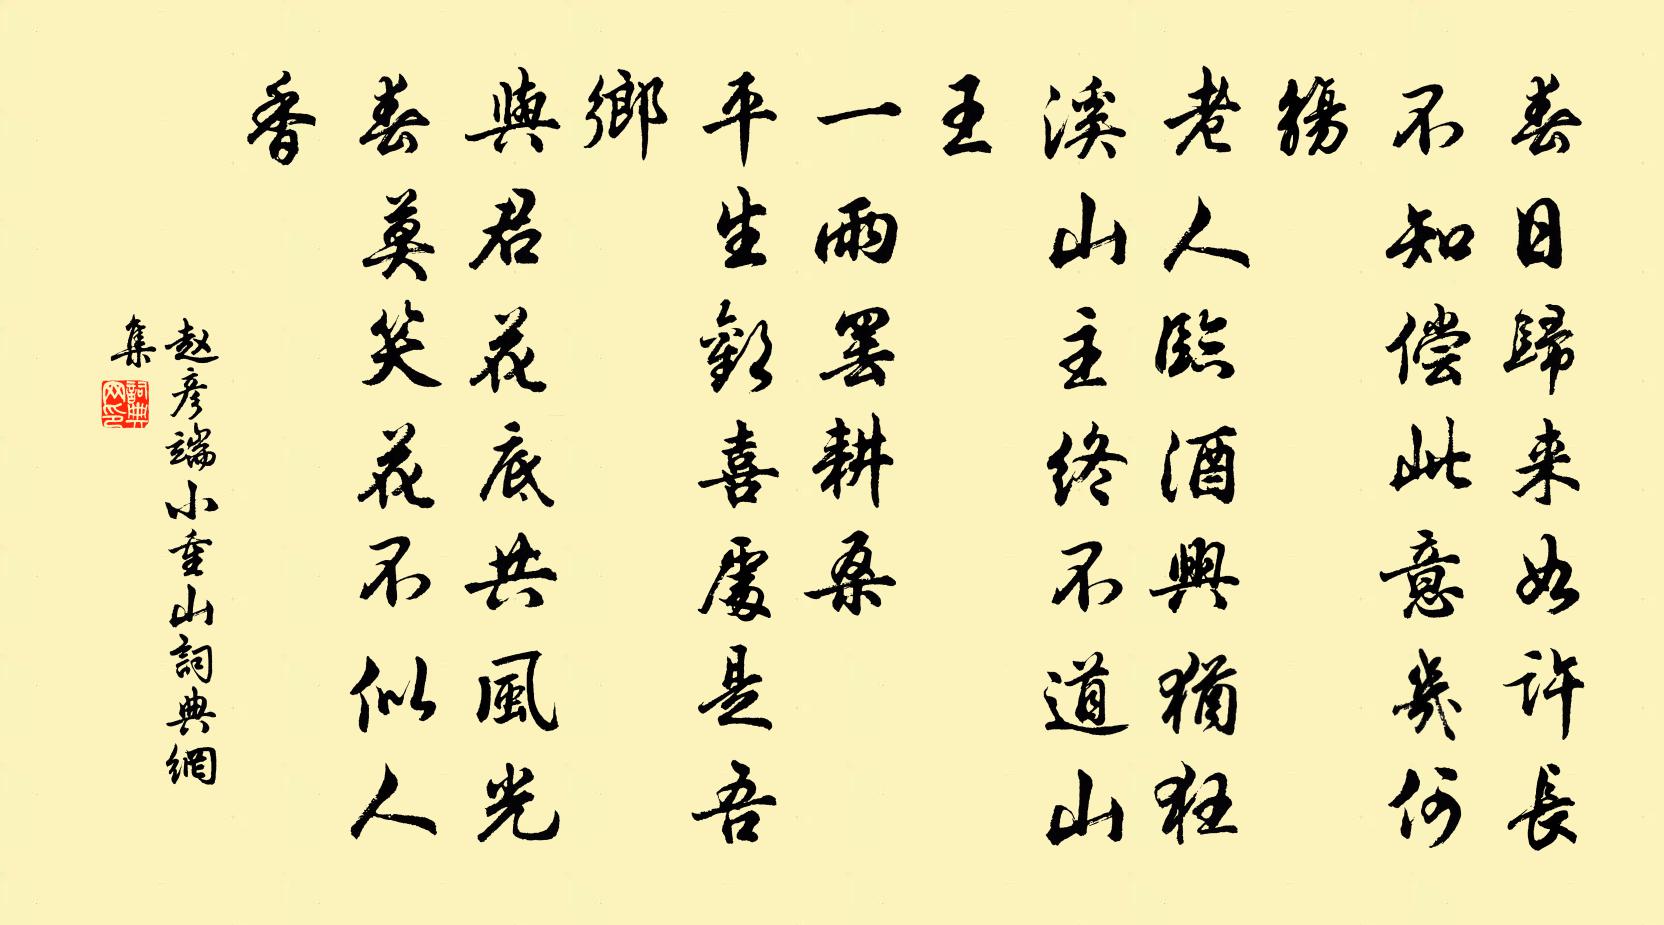 春日歸来如許長
不知偿此意幾何
觴
老人臨酒興猶狂
溪山主终不道山
王
一雨罢耕桑
平生歡喜處是吾
鄉
與君花底共風光
春莫笑花不似人
香
赵彦端小重山詞典網
集
詞典网印